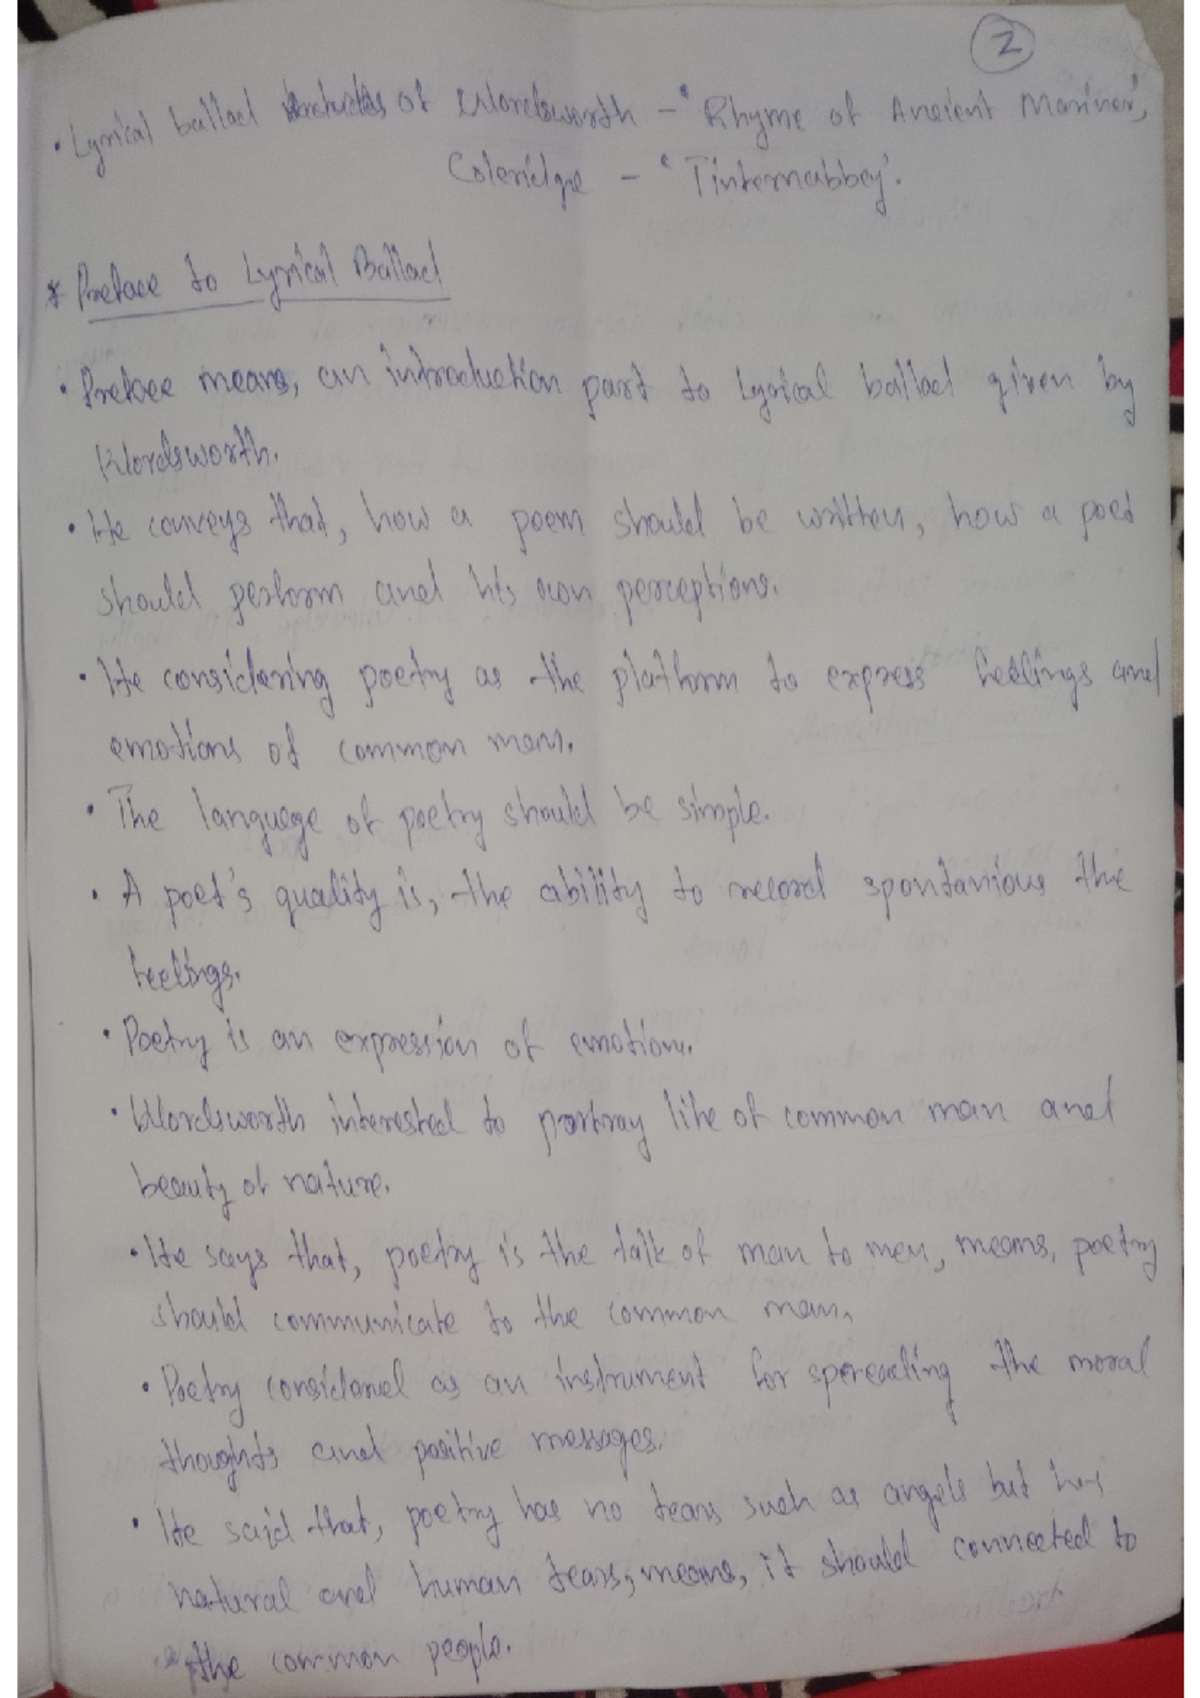 2
• Lyrical ballad of Wordsworth - 'Rhyme of Ancient Mariner',
Coleridge - 'Tinternabbey'.
* Preface to Lyrical Ballad
• Preface means, an introduction part to Lyrical ballad given by
Wordsworth.
• He conveys that, how a poem should be written, how a poet
should perform and his own perceptions.
• He considering poetry as the platform to express feelings and
emotions of common man.
• The language of poetry should be simple.
• A poet's quality is, the ability to record spontanious the
feelings.
• Poetry is an expression of emotion.
• Wordsworth interested to portray life of common man and
beauty of nature.
• He says that, poetry is the talk of man to men, means, poetry
should communicate to the common man.
• Poetry considered as an instrument for spreading the moral
thoughts and positive messages.
• He said that, poetry has no tears such as angels but has
natural and human tears, means, it should connected to
the common people.